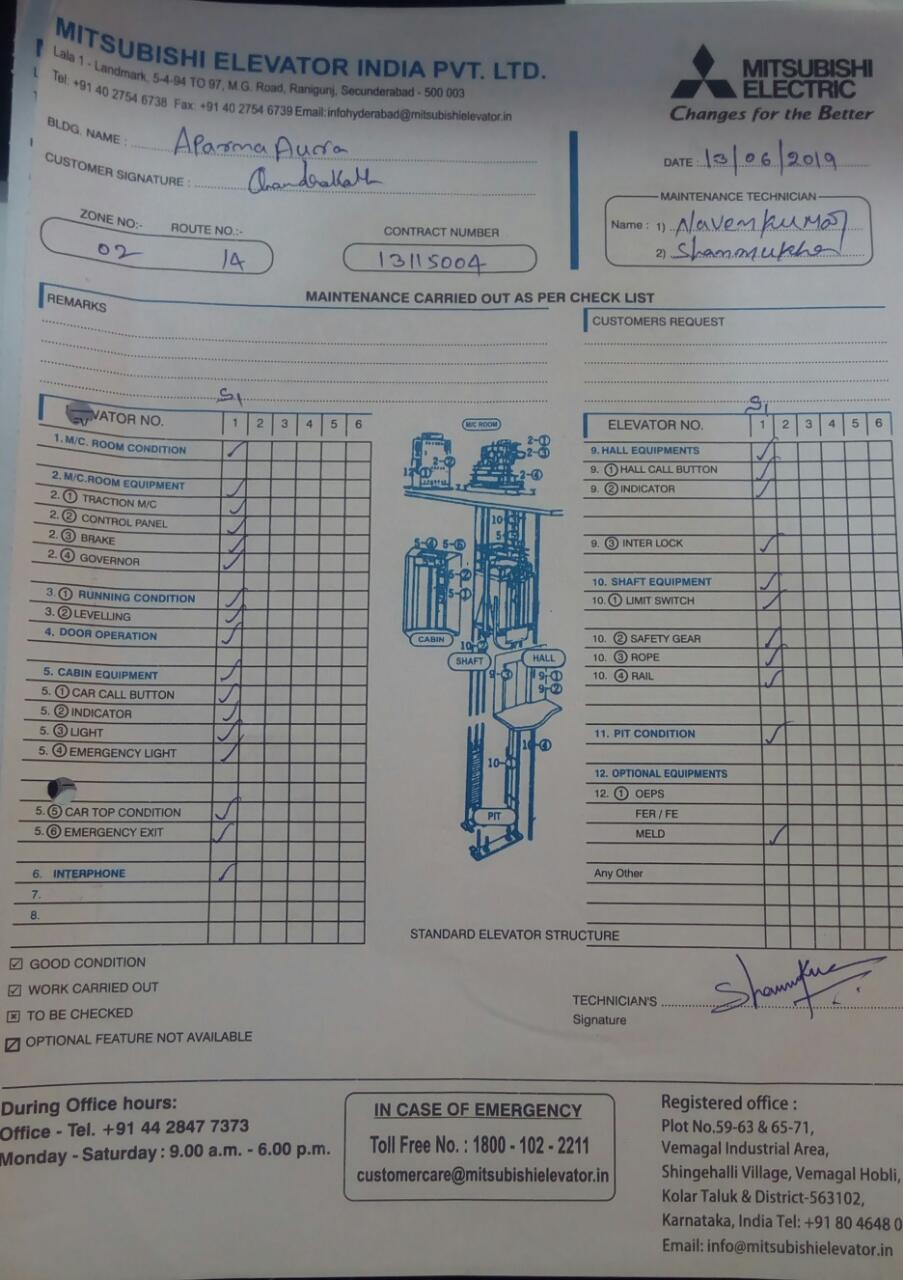 MITSUBISHI ELEVATOR INDIA PVT. LTD.
Lala 1 - Landmark, 5-4-94 TO 97, M.G. Road, Ranigunj, Secunderabad - 500 003
Tel: +91 40 2754 6738 Fax: +91 40 2754 6739 Email: infohyderabad@mitsubishielevator.in
MITSUBISHI
ELECTRIC
Changes for the Better
BLDG. NAME : Aparna Aura
CUSTOMER SIGNATURE :
DATE : 13/06/2019
MAINTENANCE TECHNICIAN
Name : 1) Navenkumar
2) Shanmukha
ZONE NO:- ROUTE NO.:-
02 14
CONTRACT NUMBER
13115004
MAINTENANCE CARRIED OUT AS PER CHECK LIST
REMARKS
CUSTOMERS REQUEST
S1
VATOR NO. 1 2 3 4 5 6
1. M/C. ROOM CONDITION
2. M/C.ROOM EQUIPMENT
2. ① TRACTION M/C
2. ② CONTROL PANEL
2. ③ BRAKE
2. ④ GOVERNOR
3. ① RUNNING CONDITION
3. ② LEVELLING
4. DOOR OPERATION
5. CABIN EQUIPMENT
5. ① CAR CALL BUTTON
5. ② INDICATOR
5. ③ LIGHT
5. ④ EMERGENCY LIGHT
5. ⑤ CAR TOP CONDITION
5. ⑥ EMERGENCY EXIT
6. INTERPHONE
7.
8.
M/C ROOM
2-①
2-③
2-②
12-①
2-④
10-③
5-④ 5-⑥
5-②
5-①
CABIN
SHAFT
HALL
9-③
9-①
9-②
10-④
PIT
STANDARD ELEVATOR STRUCTURE
S1
ELEVATOR NO. 1 2 3 4 5 6
9. HALL EQUIPMENTS
9. ① HALL CALL BUTTON
9. ② INDICATOR
9. ③ INTER LOCK
10. SHAFT EQUIPMENT
10. ① LIMIT SWITCH
10. ② SAFETY GEAR
10. ③ ROPE
10. ④ RAIL
11. PIT CONDITION
12. OPTIONAL EQUIPMENTS
12. ① OEPS
FER / FE
MELD
Any Other
GOOD CONDITION
WORK CARRIED OUT
TO BE CHECKED
OPTIONAL FEATURE NOT AVAILABLE
TECHNICIAN'S
Signature
During Office hours:
Office - Tel. +91 44 2847 7373
Monday - Saturday : 9.00 a.m. - 6.00 p.m.
IN CASE OF EMERGENCY
Toll Free No. : 1800 - 102 - 2211
customercare@mitsubishielevator.in
Registered office :
Plot No.59-63 & 65-71,
Vemagal Industrial Area,
Shingehalli Village, Vemagal Hobli,
Kolar Taluk & District-563102,
Karnataka, India Tel: +91 80 4648 0
Email: info@mitsubishielevator.in